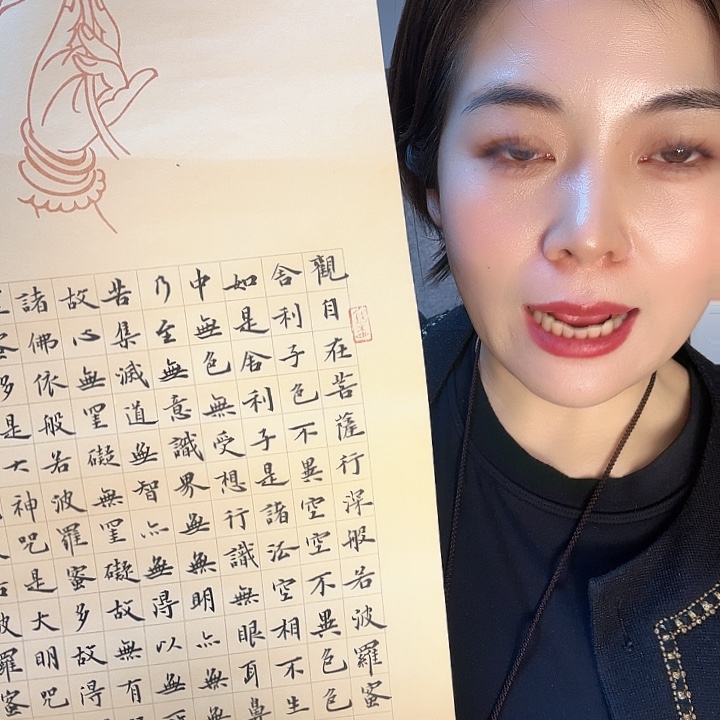 觀自在菩薩行深般若波羅蜜
舍利子色不異空空不異色色
如是舍利子是諸法空相不生
中無色無受想行識無眼耳鼻
乃至無意識界無無明亦無無
苦集滅道無智亦無得以無所
故心無罣礙無罣礙故無有
諸佛依般若波羅蜜多故得
蜜多是大神咒是大明咒
波羅蜜